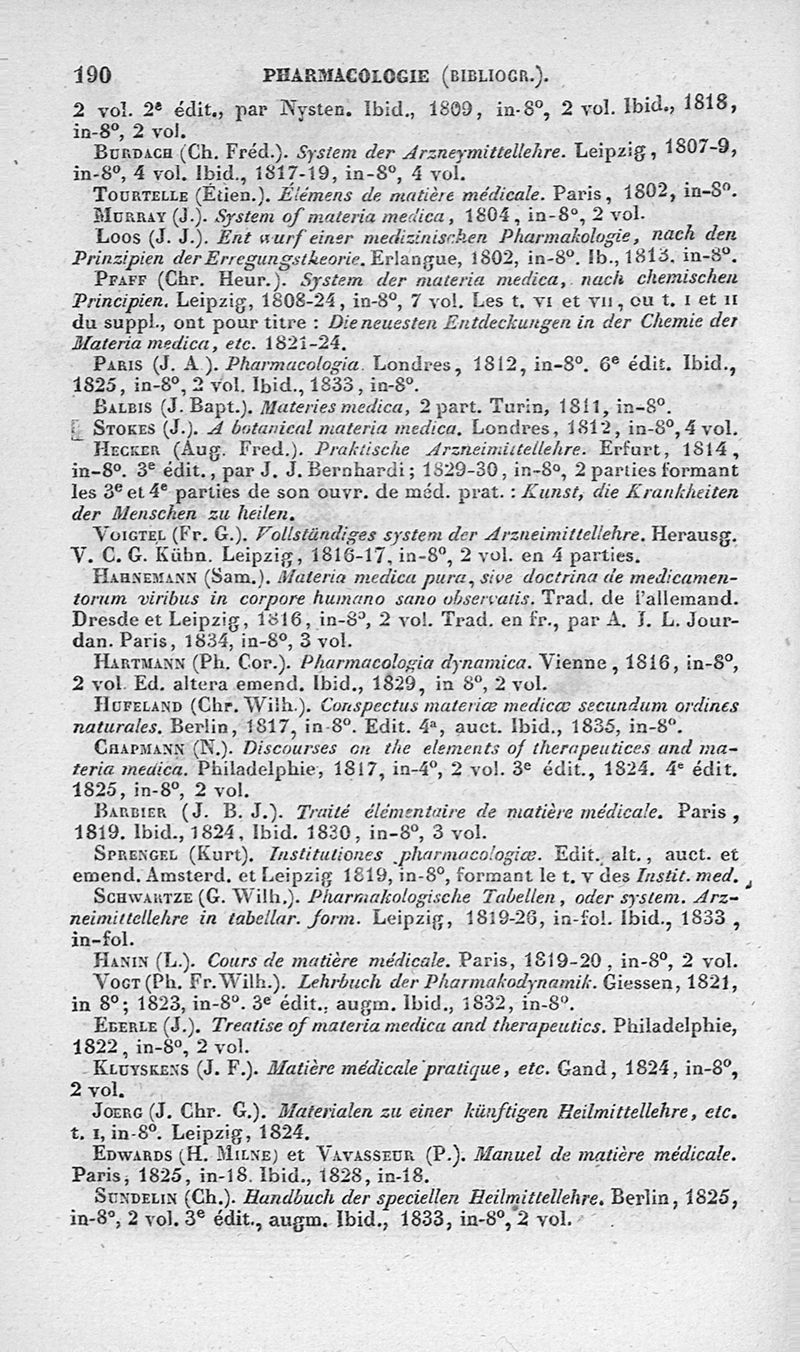 190 PHARMACOLOGIE (BIBLIOGR.).
2 vol. 2e édit., par Nysten. Ibid., 1809, in-8o, 2 vol. Ibid., 1818,
in-8o, 2 vol.
BURDACH (Ch. Fréd.). System der Arzneymittellehre. Leipzig, 1807-9,
in-8o, 4 vol. Ibid., 1817-19, in-8o, 4 vol.
TOURTELLE (Étien.). Élémens de matière médicale. Paris, 1802, in-8o.
MURRAY (J.). System of materia medica, 1804, in-8o, 2 vol.
LOOS (J. J.). Entwurf einer medizinischen Pharmakologie, nach den
Prinzipien der Erregungstheorie. Erlangue, 1802, in-8o. Ib., 1813. in-8o.
PFAFF (Chr. Heur.). System der materia medica, nach chemischen
Principien. Leipzig, 1808-24, in-8o, 7 vol. Les t. VI et VII, ou t. I et II
du suppl., ont pour titre : Die neuesten Entdeckungen in der Chemie der
Materia medica, etc. 1821-24.
PARIS (J. A ). Pharmacologia. Londres, 1812, in-8o. 6e édit. Ibid.,
1825, in-8o, 2 vol. Ibid., 1833, in-8o.
BALBIS (J. Bapt.). Materies medica, 2 part. Turin, 1811, in-8o.
STOKES (J.). A botanical materia medica. Londres, 1812, in-8o, 4 vol.
HECKER (Aug. Fred.). Praktische Arzneimittellehre. Erfurt, 1814,
in-8o. 3e édit., par J. J. Bernhardi; 1829-30, in-8o, 2 parties formant
les 3e et 4e parties de son ouvr. de méd. prat. : Kunst, die Krankheiten
der Menschen zu heilen.
VOIGTEL (Fr. G.). Vollständiges system der Arzneimittellehre. Herausg.
V. C. G. Kühn. Leipzig, 1816-17, in-8o, 2 vol. en 4 parties.
HAHNEMANN (Sam.). Materia medica pura, sive doctrina de medicamen-
torum viribus in corpore humano sano observatis. Trad. de l'allemand.
Dresde et Leipzig, 1816, in-8o, 2 vol. Trad. en fr., par A. J. L. Jour-
dan. Paris, 1834, in-8o, 3 vol.
HARTMANN (Ph. Cor.). Pharmacologia dynamica. Vienne, 1816, in-8o,
2 vol. Ed. altera emend. Ibid., 1829, in 8o, 2 vol.
HUFELAND (Chr. Wilh.). Conspectus materiæ medicæ secundum ordines
naturales. Berlin, 1817, in-8o. Edit. 4a, auct. Ibid., 1835, in-8o.
CHAPMANN (N.). Discourses on the elements of therapeutices and ma-
teria medica. Philadelphie, 1817, in-4o, 2 vol. 3e édit., 1824. 4e édit.
1825, in-8o, 2 vol.
BARBIER (J. B. J.). Traité élémentaire de matière médicale. Paris,
1819. Ibid., 1824, Ibid. 1830, in-8o, 3 vol.
SPRENGEL (Kurt). Institutiones pharmacologiæ. Edit. alt., auct. et
emend. Amsterd. et Leipzig 1819, in-8o, formant le t. V des Instit. med.
SCHWARTZE (G. Wilh.). Pharmakologische Tabellen, oder system. Arz-
neimittellehre in tabellar. form. Leipzig, 1819-26, in-fol. Ibid., 1833,
in-fol.
HANIN (L.). Cours de matière médicale. Paris, 1819-20, in-8o, 2 vol.
VOGT (Ph. Fr. Wilh.). Lehrbuch der Pharmakodynamik. Giessen, 1821,
in 8o; 1823, in-8o. 3e édit., augm. Ibid., 1832, in-8o.
EBERLE (J.). Treatise of materia medica and therapeutics. Philadelphie,
1822, in-8o, 2 vol.
KLUYSKENS (J. F.). Matière médicale pratique, etc. Gand, 1824, in-8o,
2 vol.
JOERG (J. Chr. G.). Materialen zu einer künftigen Heilmittellehre, etc.
t. I, in-8o. Leipzig, 1824.
EDWARDS (H. MILNE) et VAVASSEUR (P.). Manuel de matière médicale.
Paris, 1825, in-18. Ibid., 1828, in-18.
SUNDELIN (Ch.). Handbuch der speciellen Heilmittellehre. Berlin, 1825,
in-8o, 2 vol. 3e édit., augm. Ibid., 1833, in-8o, 2 vol.